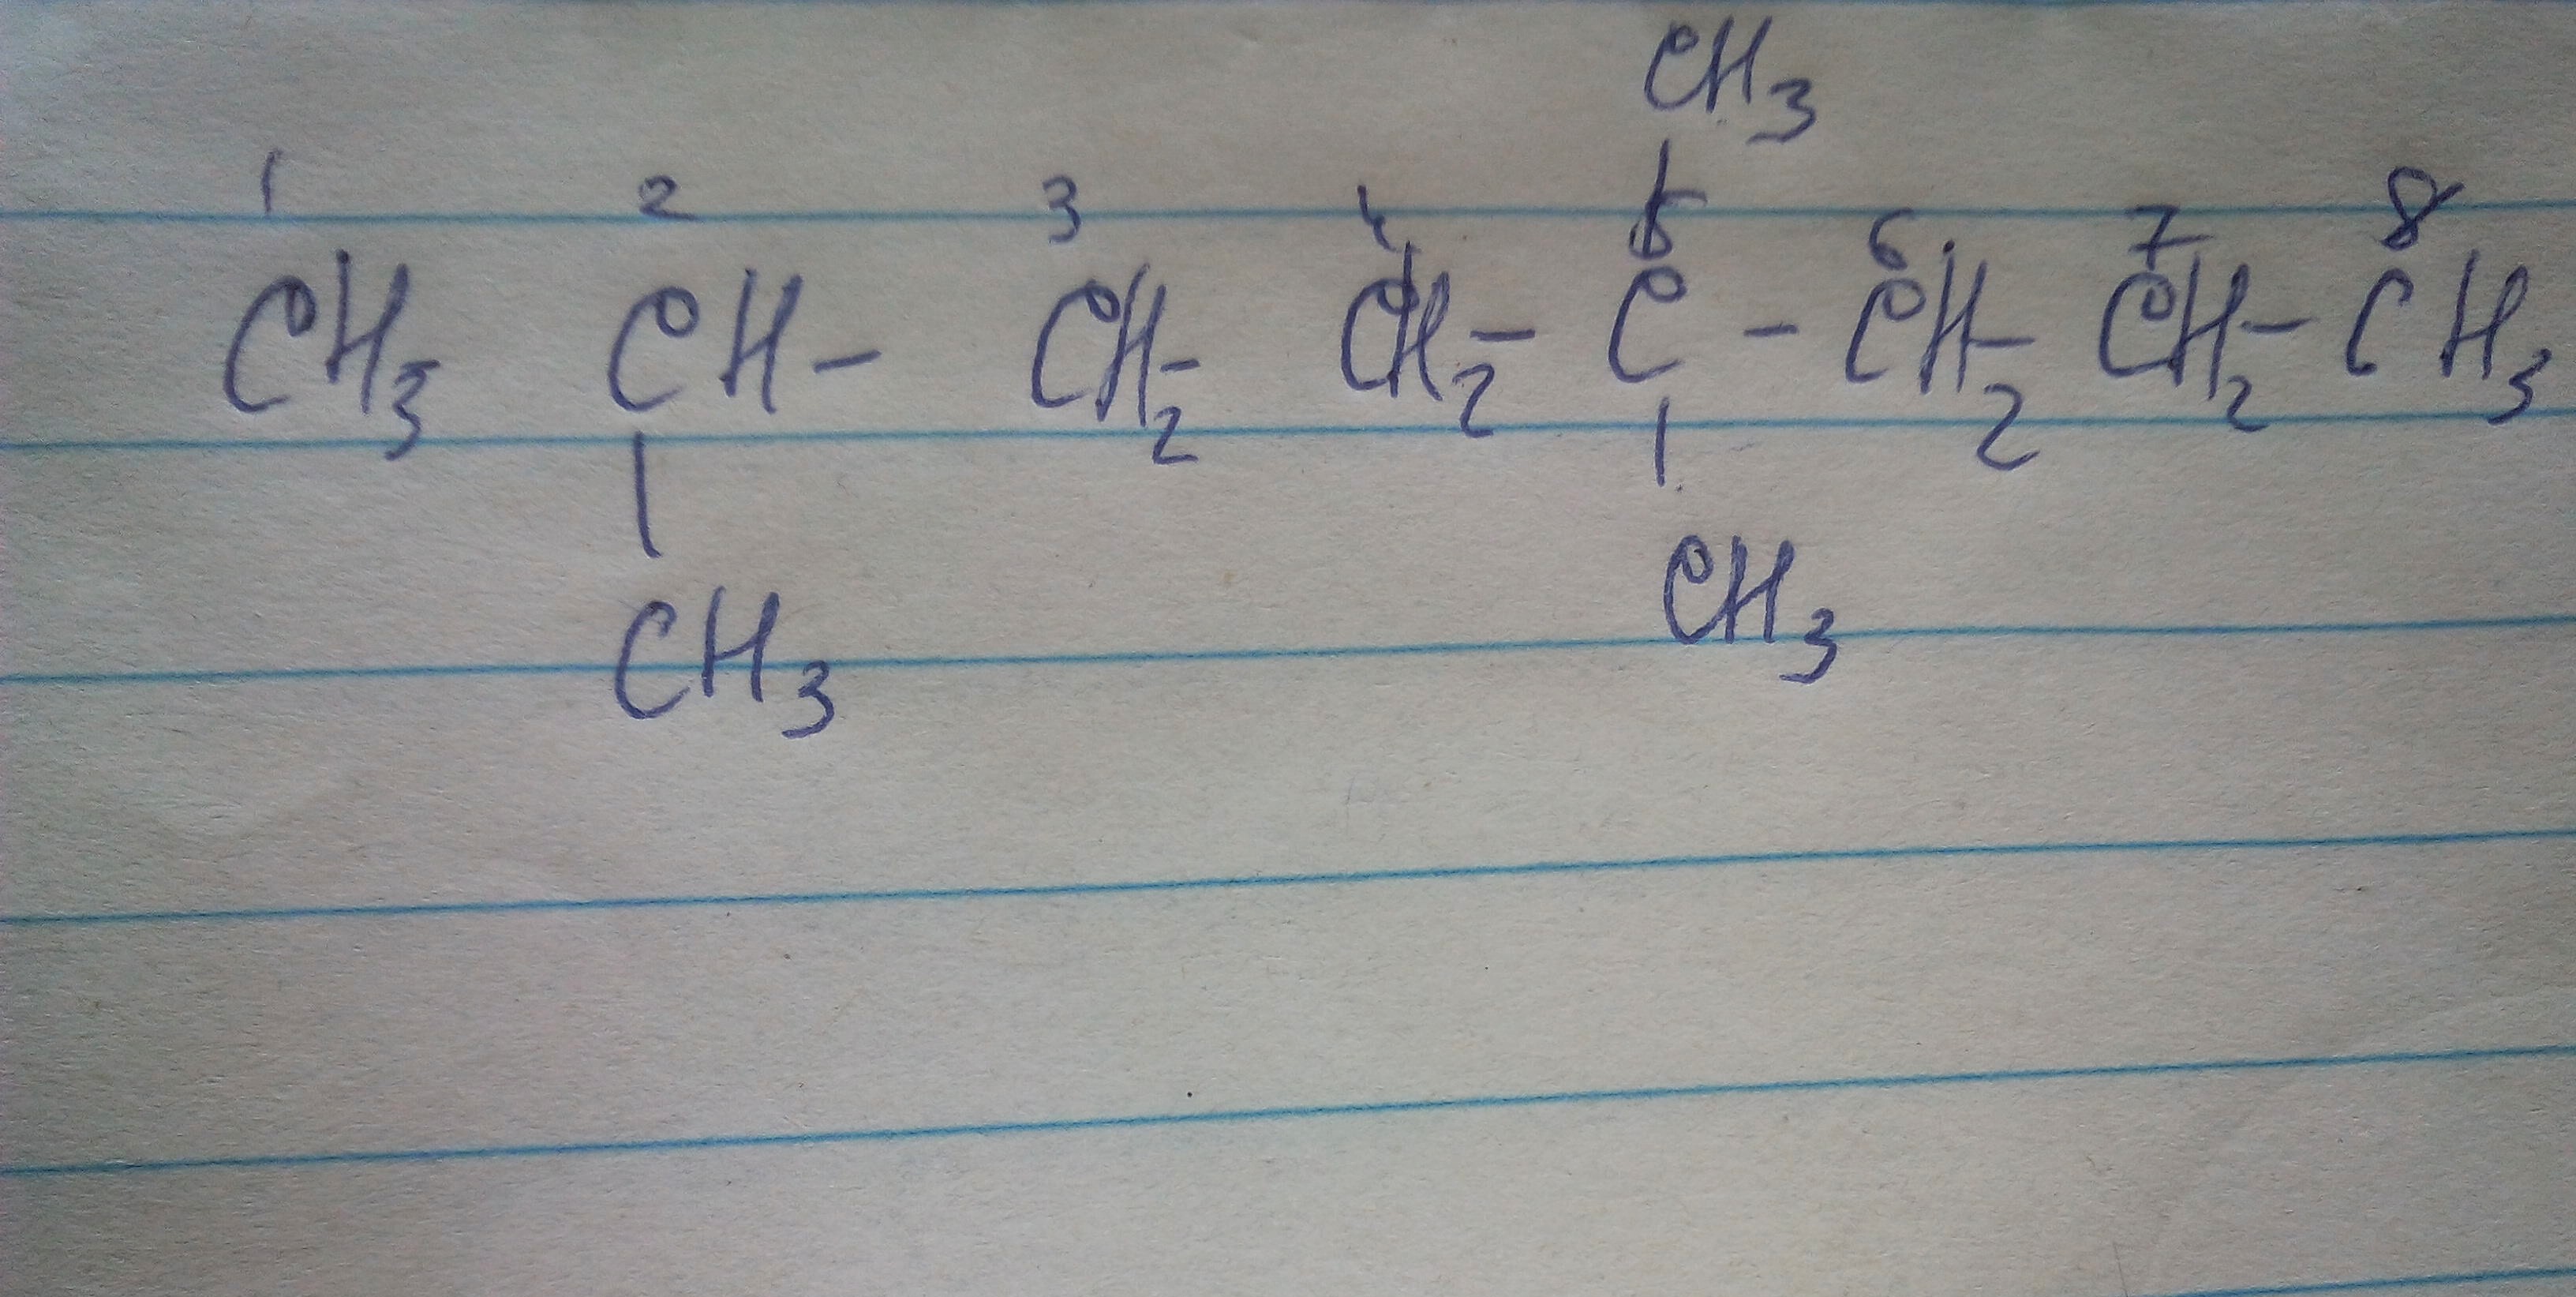 CH3
1 2 3 4 5 6 7 8
CH3 CH- CH2- CH2- C - CH2- CH2- CH3
CH3 CH3